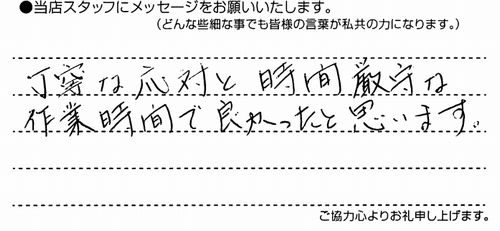 ●当店スタッフにメッセージをお願いいたします。
（どんな些細な事でも皆様の言葉が私共の力になります。）
丁寧な応対と時間厳守な
作業時間で良かったと思います。
ご協力心よりお礼申し上げます。